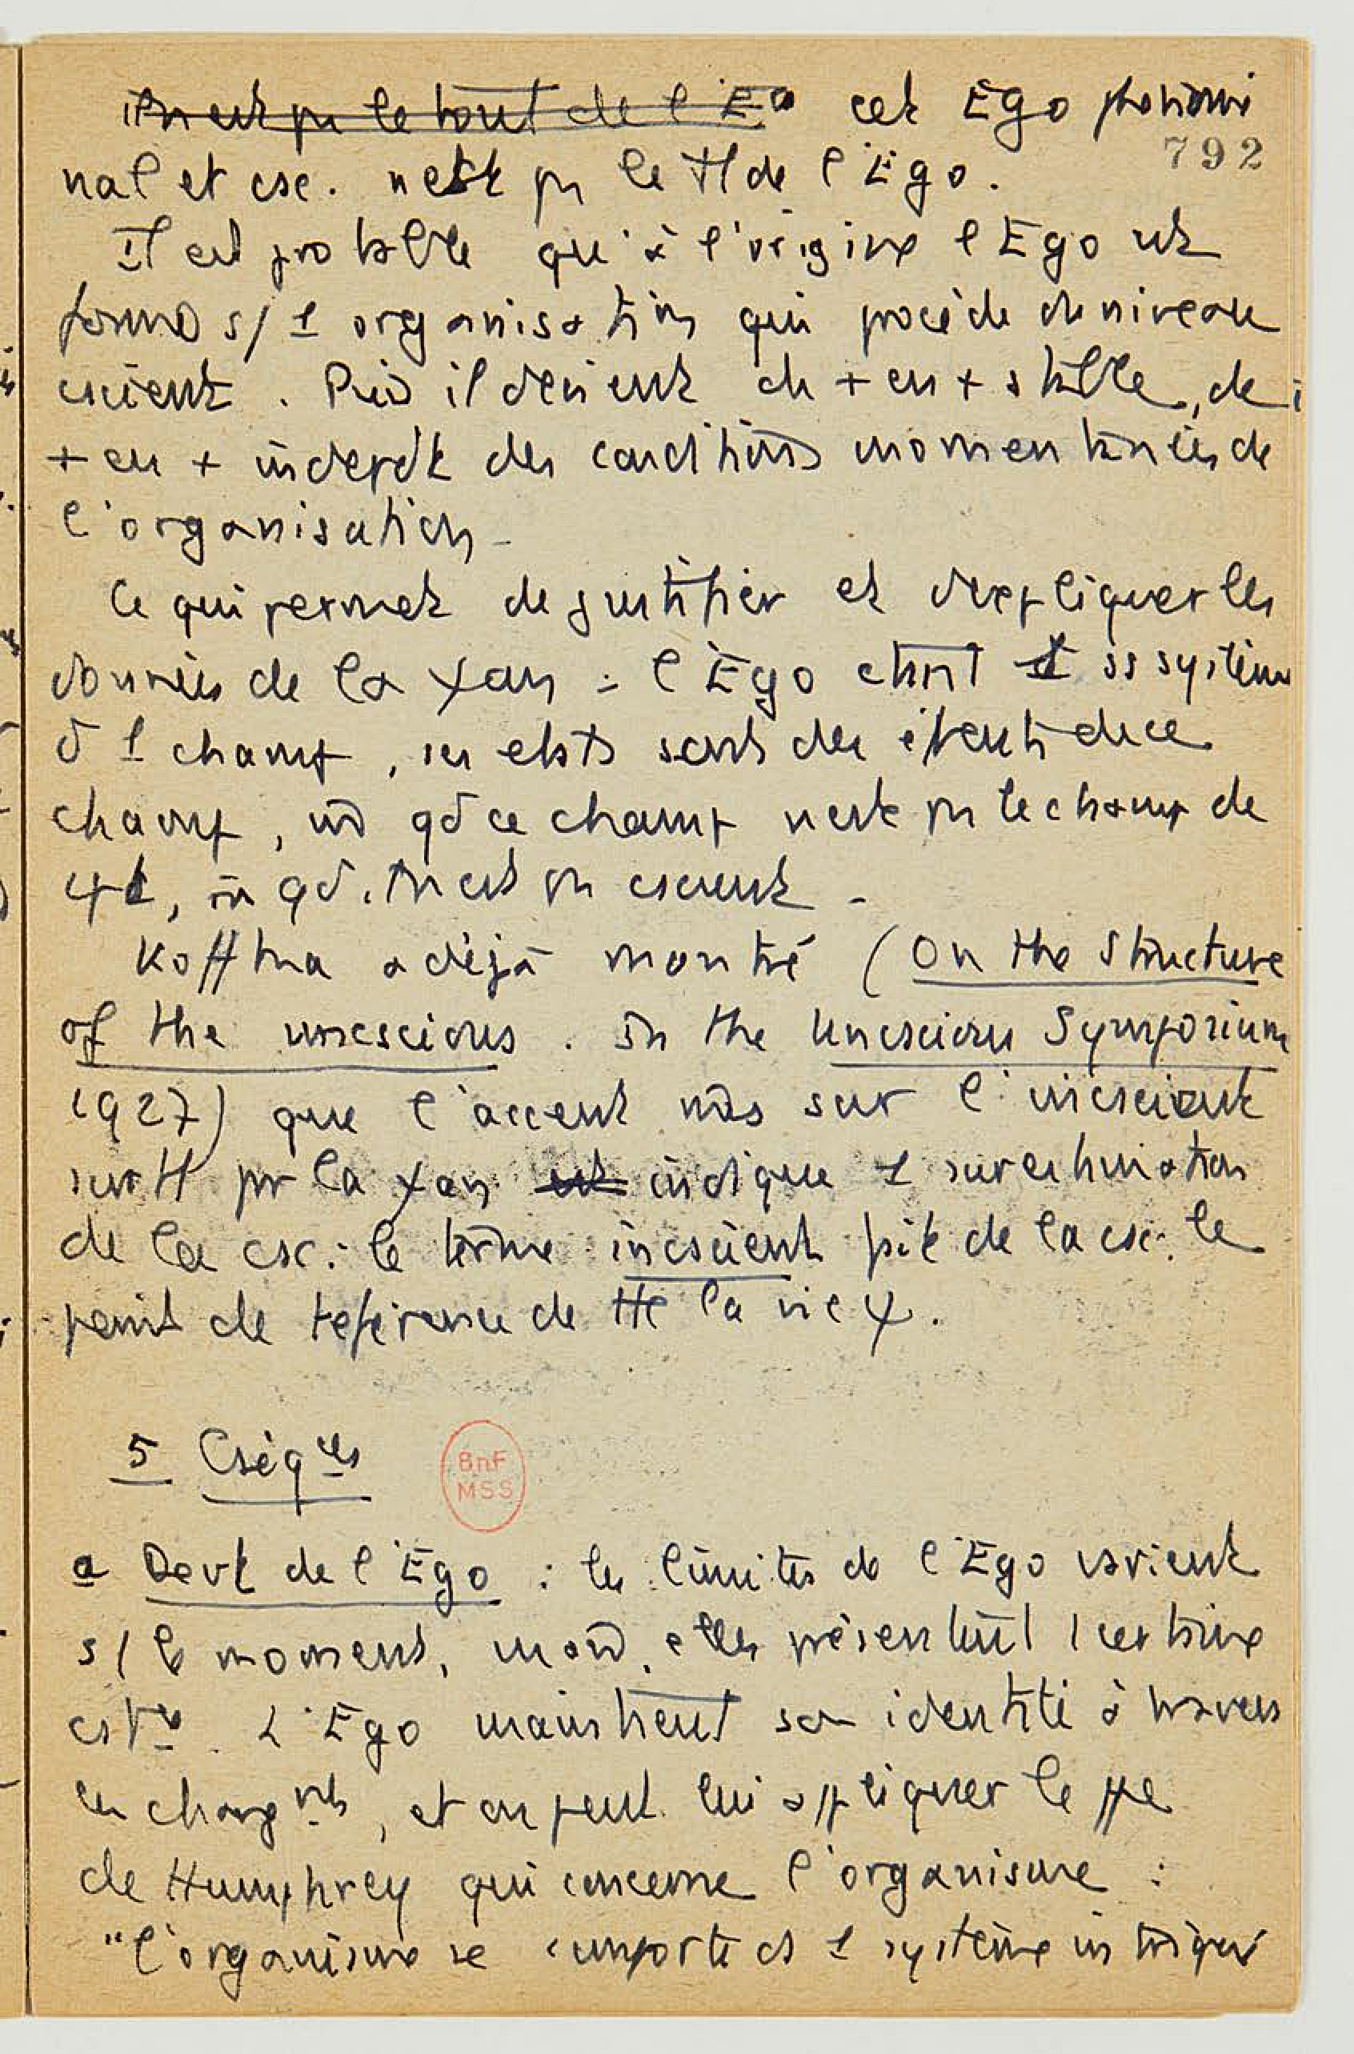 il n'est pas le tout de l'Ego cet Ego phénomé
792
nal et csc. n'est pas le tt de l'Ego.
Il est probable qu'à l'origine l'Ego est
formé s/ 1 organisation qui procède du niveau
cscient. Puis il devient de + en + stable, de
+ en + indepdt des conditions momentanées de
l'organisation.
Ce qui permet de justifier et d'expliquer les
données de la ψan : l'Ego étant 1 ss système
d 1 champ, ses états sont des états de ce
champ, m qd ce champ n'est pas le champ de
, m qd il n'est pas cscient.
Koffka a déjà montré (On the Structure
of the unscscious. in the Uncscious Symposium
1927) que l'accent mis sur l'incscient
surtt par la ψan indique 1 surestimation
de la csc. : le terme incscient fait de la csc. le
point de référence de tte la vie ψ.
5 Cséqces
BnF
MSS
a Devt de l'Ego : les limites de l'Ego varient
s/ le moment, mais elles présentent 1 certaine
cstce. L'Ego maintient son identité à travers
les changmts, et on peut lui appliquer le ppe
de Humphrey qui concerne l'organisme :
"l'organisme se comporte cs 1 système intégré